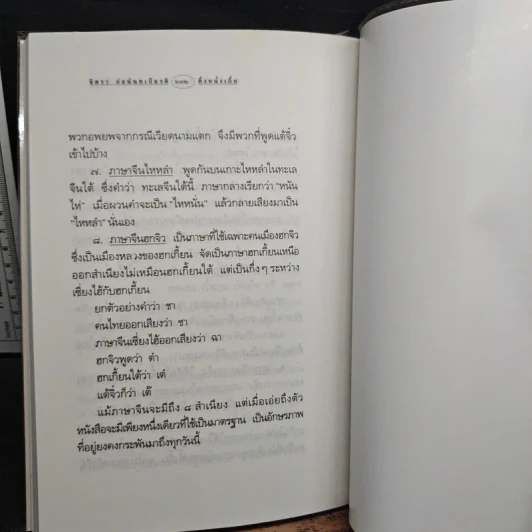 จิตรา ก่อนันทเกียรติ ๒๓๒ ตึ่งหนั่งเกี้ย
พวกอพยพจากกรณีเวียดนามแตก จึงมีพวกที่พูดแต้จิ๋ว
เข้าไปบ้าง
๗. ภาษาจีนไหหลำ พูดกันบนเกาะไหหลำในทะเล
จีนใต้ ซึ่งคำว่า ทะเลจีนใต้นี้ ภาษากลางเรียกว่า "หนัน
ไห่" เมื่อผวนคำจะเป็น "ไหหนัน" แล้วกลายเสียงมาเป็น
"ไหหลำ" นั่นเอง
๘. ภาษาจีนฮกจิว เป็นภาษาที่ใช้เฉพาะคนเมืองฮกจิว
ซึ่งเป็นเมืองหลวงของฮกเกี้ยน จัดเป็นภาษาฮกเกี้ยนเหนือ
ออกสำเนียงไม่เหมือนฮกเกี้ยนใต้ แต่เป็นกึ่งๆ ระหว่าง
เซี่ยงไฮ้กับฮกเกี้ยน
ยกตัวอย่างคำว่า ชา
คนไทยออกเสียงว่า ชา
ภาษาจีนเซี่ยงไฮ้ออกเสียงว่า ฉา
ฮกจิวพูดว่า ต๋า
ฮกเกี้ยนใต้ว่า เต๋
แต้จิ๋วก็ว่า เต๊
แม้ภาษาจีนจะมีถึง ๘ สำเนียง แต่เมื่อเอ่ยถึงตัว
หนังสือจะมีเพียงหนึ่งเดียวที่ใช้เป็นมาตรฐาน เป็นอักษรภาพ
ที่อยู่ยงคงกระพันมาถึงทุกวันนี้